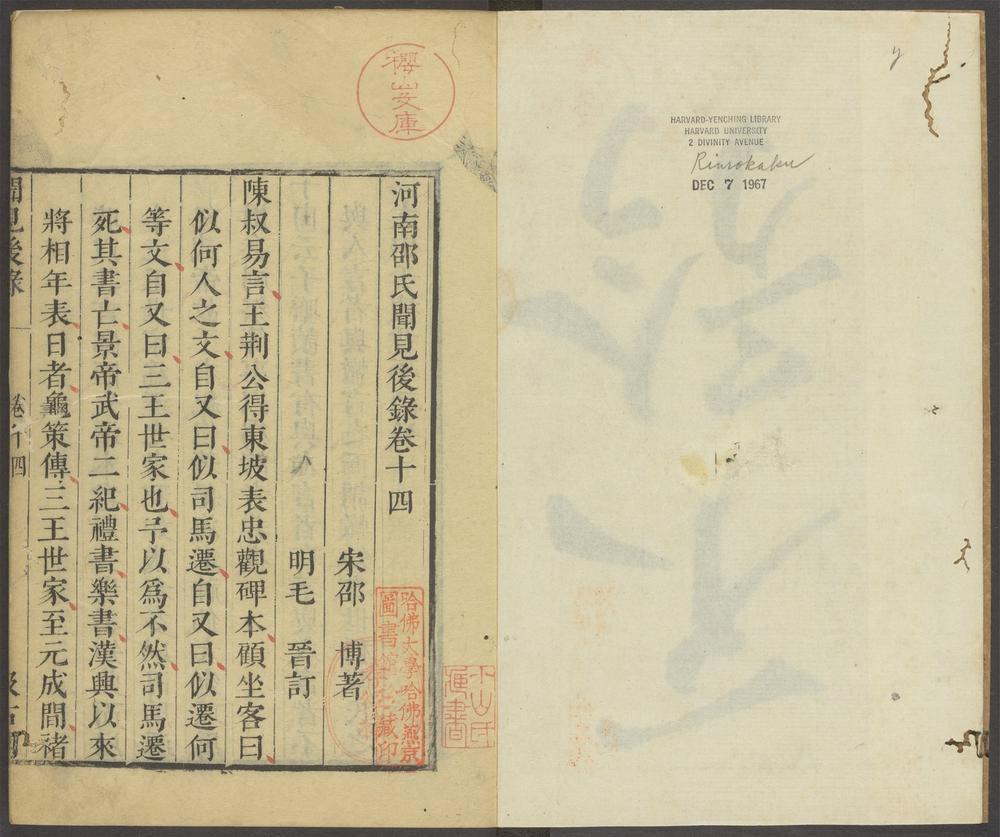 HARVARD-YENCHING LIBRARY
HARVARD UNIVERSITY
2 DIVINITY AVENUE
Rinrokaku
DEC 7 1967
櫻山文庫
河南邵氏聞見後錄卷十四
宋邵　博著
明毛　晉訂
陳叔易言王荆公得東坡表忠觀碑本顧坐客曰
似何人之文自又曰似司馬遷自又曰似遷何
等文自又曰三王世家也予以爲不然司馬遷
死其書亡景帝武帝二紀禮書樂書漢興以來
將相年表日者龜策傳三王世家至元成間褚
聞見後錄
卷十四
哈佛大學哈佛燕京
圖書館珍藏印